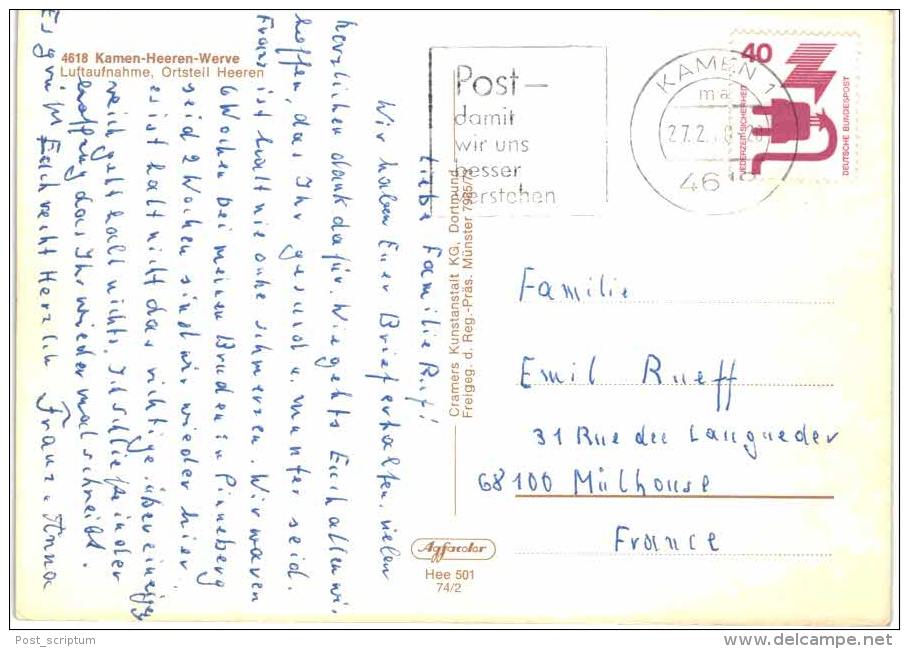 4618 Kamen-Heeren-Werve
Luftaufnahme, Ortsteil Heeren
Liebe Familie Ruf!
Wir haben Euer Brief erhalten. vielen
herzlichen dank dafür. Wie gehts Euch allen wir
hoffen, das Ihr gesund u. munter seid.
Franz ist halt nie ohne schmerzen. Wir waren
6 Wochen bei meinen Bruder in Pinneberg
seid 2 Wochen sind wir wieder hier.
es ist halt nicht das richtige. über
reich geht halt nichts. Ich schließe in der
hoffnung das Ihr wieder mal schreibt.
Es grüßt Euch recht Herzlich Franz u Anna
Cramers Kunstanstalt KG, Dortmund
Freigeg. d. Reg.-Präs. Münster 7985/
Agfacolor
Hee 501
74/2
Post—
damit
wir uns
besser
verstehen
KAMEN 1
ma
27.2.
4618
40
JEDERZEIT SICHERHEIT
DEUTSCHE BUNDESPOST
Familie
Emil Rueff
31 Rue des Languedor
68100 Mülhouse
France
Post_scriptum
www.delcampe.net